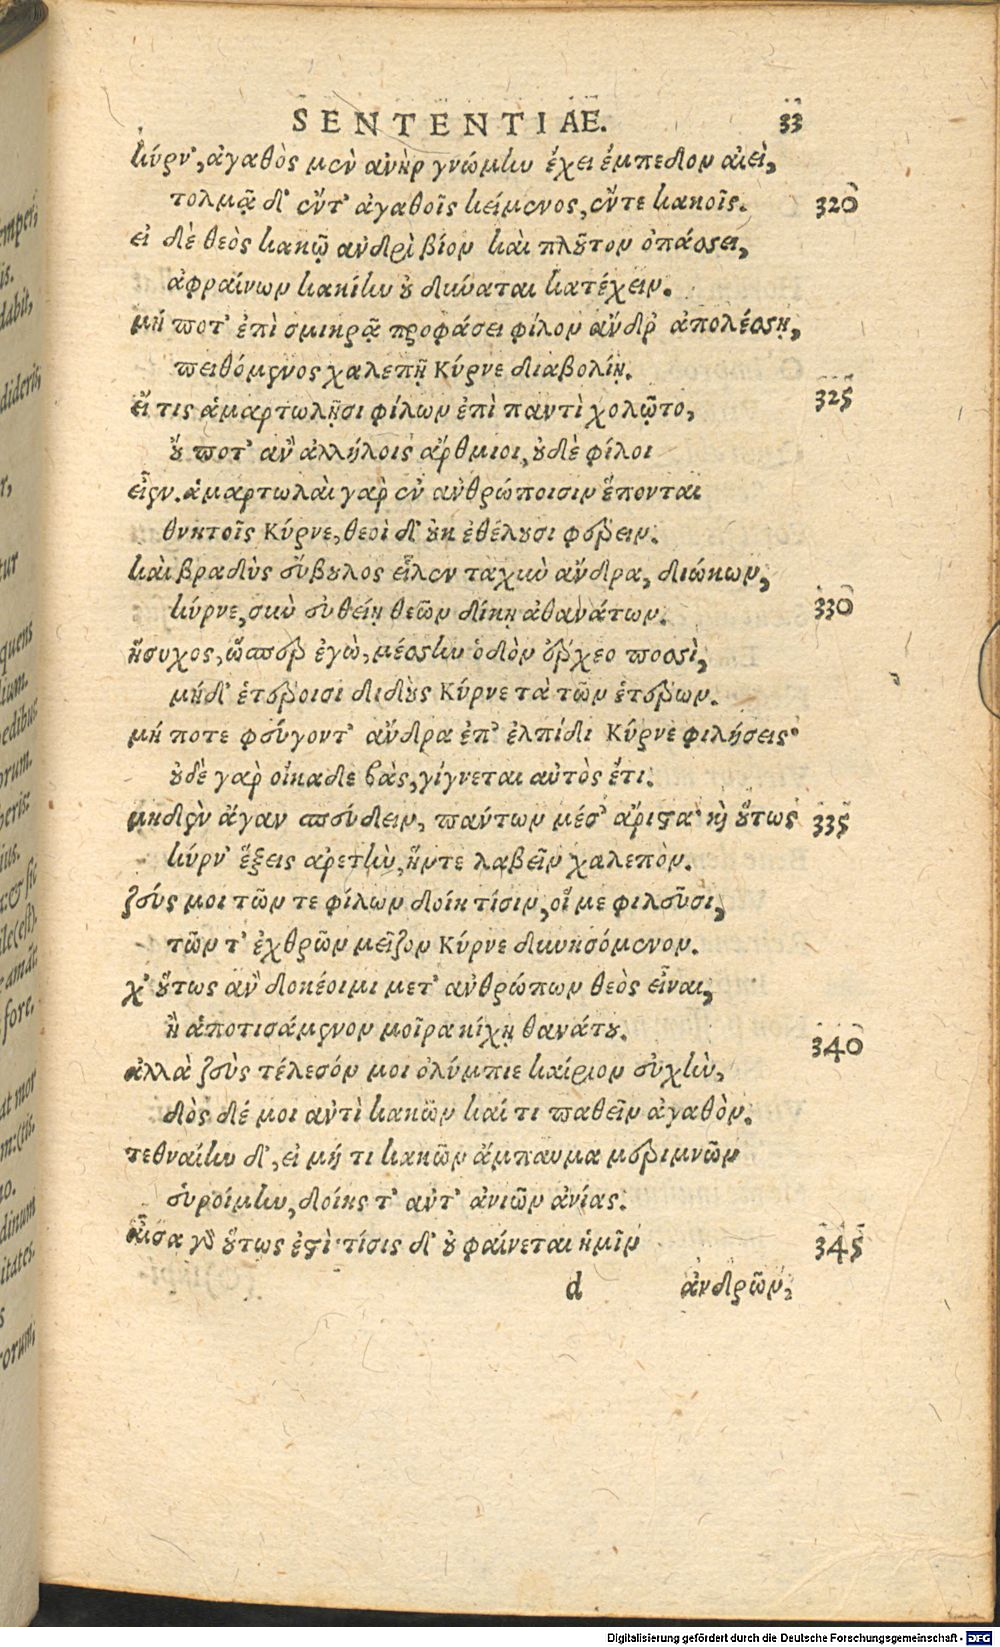 SENTENTIAE. 33
κύρν', ἀγαθὸς μὲν ἀνὴρ γνώμην ἔχει ἔμπεδον αἰεὶ,
τολμᾷ δ' ἔντ' ἀγαθοῖς κείμενος, ἔντε κακοῖς. 320
εἰ δὲ θεὸς κακῷ ἀνδρὶ βίον καὶ πλοῦτον ὀπάσσει,
ἀφραίνων κακίην οὐ δύναται κατέχειν.
μή ποτ' ἐπὶ σμικρᾷ προφάσει φίλον ἄνδρ' ἀπολέσσῃ,
πειθόμενος χαλεπῇ Κύρνε διαβολίῃ.
εἴ τις ἁμαρτωλῇσι φίλων ἐπὶ παντὶ χολῷτο, 325
οὔ ποτ' ἂν ἀλλήλοις ἄρθμιοι, οὐδὲ φίλοι
εἶεν. ἁμαρτωλαὶ γὰρ ἐν ἀνθρώποισιν ἕπονται
θνητοῖς Κύρνε, θεοὶ δ' οὐκ ἐθέλουσι φέρειν.
καὶ βραδὺς εὔβουλος εἷλεν ταχὺν ἄνδρα, διώκων,
κύρνε, σὺν εὐθείῃ θεῶν δίκῃ ἀθανάτων. 330
ἥσυχος, ὥσπερ ἐγὼ, μέσσην ὁδὸν ἔρχεο ποσσὶ,
μήδ' ἑτέροισι διδοὺς Κύρνε τὰ τῶν ἑτέρων.
μή ποτε φεύγοντ' ἄνδρα ἐπ' ἐλπίδι Κύρνε φιλήσεις·
οὐδὲ γὰρ οἴκαδε βὰς, γίγνεται αὐτὸς ἔτι.
μηδὲν ἄγαν σπεύδειν, πάντων μέσ' ἄριστα· καὶ οὕτως 335
κύρν' ἕξεις ἀρετὴν, ἥντε λαβεῖν χαλεπὸν.
ζεύς μοι τῶν τε φίλων δοίη τίσιν, οἵ με φιλεῦσι,
τῶν τ' ἐχθρῶν μεῖζον Κύρνε δυνησόμενον.
χ' οὕτως ἂν δοκέοιμι μετ' ἀνθρώπων θεὸς εἶναι,
ἢ ἀποτισάμενον μοῖρα κίχῃ θανάτου. 340
ἀλλὰ ζεὺς τέλεσόν μοι ὀλύμπιε καίριον εὐχὴν,
δὸς δέ μοι ἀντὶ κακῶν καί τι παθεῖν ἀγαθὸν.
τεθναίην δ', εἰ μή τι κακῶν ἄμπαυμα μεριμνῶν
εὑροίμην, δοίης τ' ἀντ' ἀνιῶν ἀνίας.
αἶσα γὰρ οὕτως ἐστὶ· τίσις δ' οὐ φαίνεται ἡμῖν 345
d ἀνδρῶν,
Digitalisierung gefördert durch die Deutsche Forschungsgemeinschaft - DFG